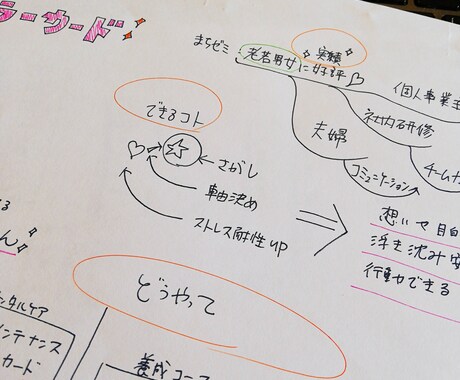 ラーカード!
実績
まちゼミ:老若男女に好評♡
個人事業主
社内研修
夫婦
コミュニケーション
チーム
できるコト
♡→☆←さがし
軸決め
ストレス耐性up
想いや
浮き沈み
行動できる
どうやって
ンタルケア
メンテナンス
カード
養成コース